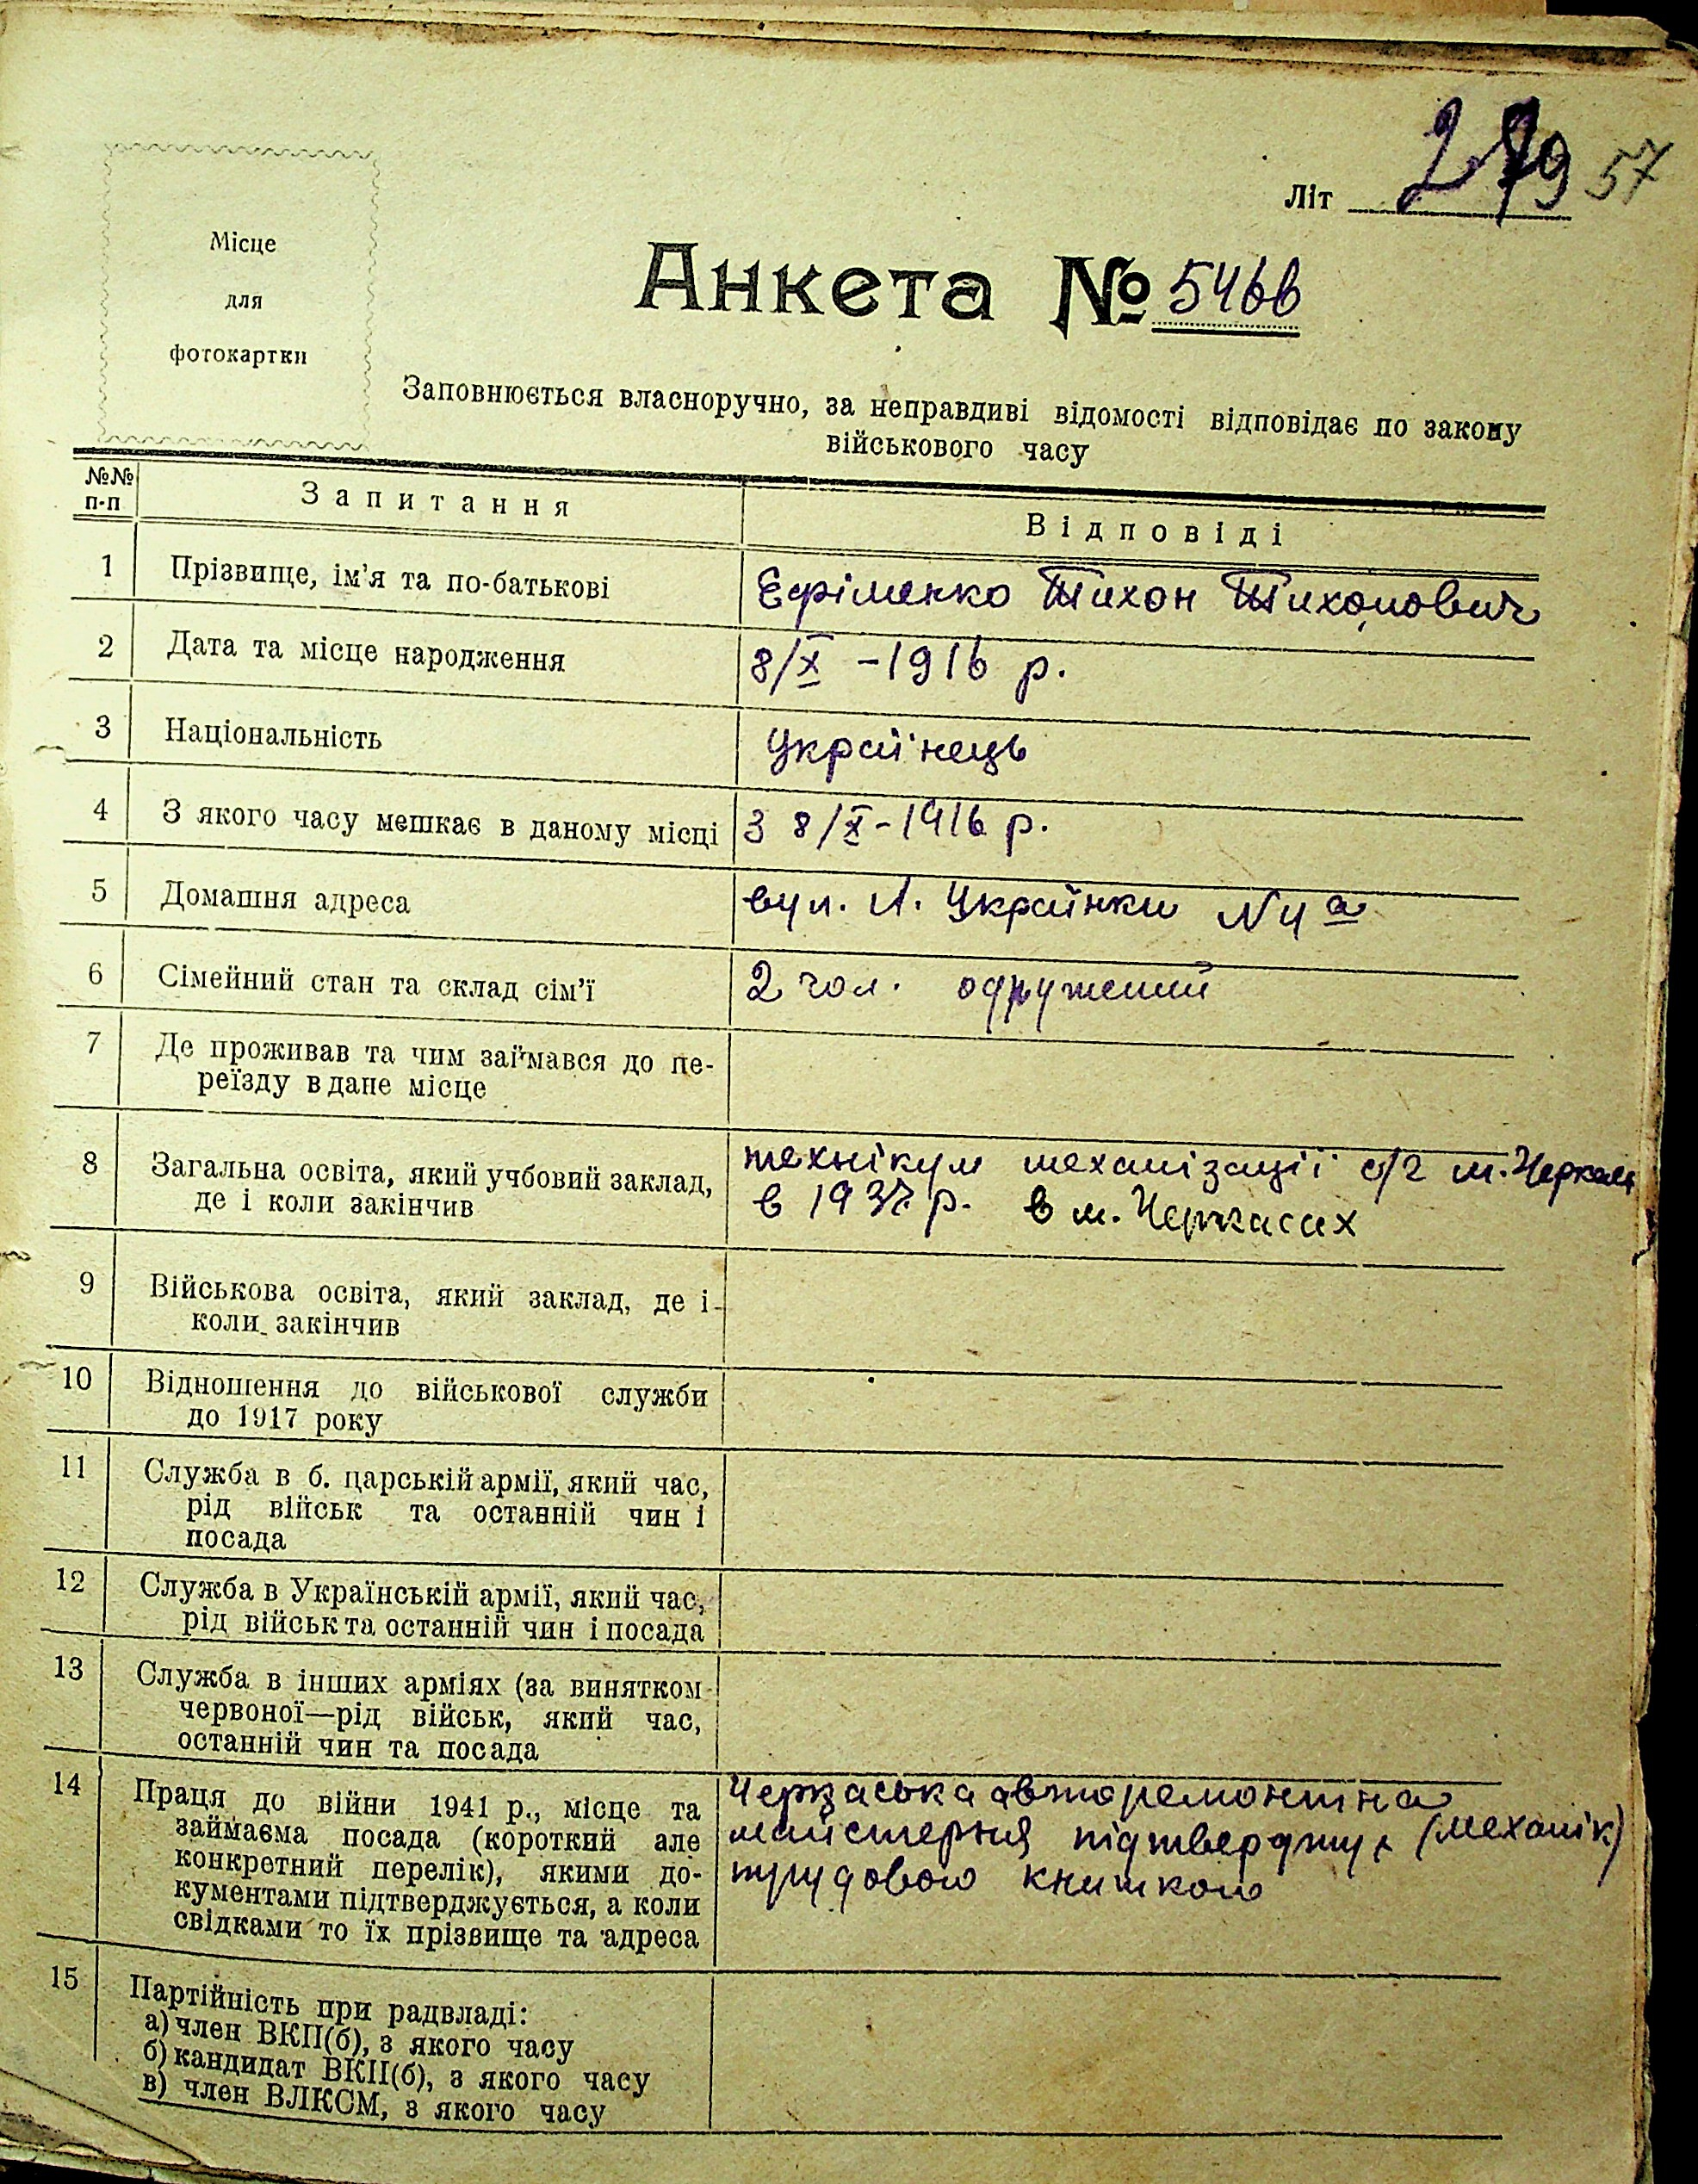 57
Літ 279
Місце
для
фотокартки
Анкета № 5466
Заповнюється власноручно, за неправдиві відомості відповідає по закону
військового часу
№№ п-п Запитання Відповіді
1 Прізвище, ім'я та по-батькові Єфіменко Тихон Тихонович
2 Дата та місце народження 8/X - 1916 р.
3 Національність Українець
4 З якого часу мешкає в даному місці З 8/X - 1916 р.
5 Домашня адреса вул. Л. Українки №4а
6 Сімейний стан та склад сім'ї 2 чол. одружений
7 Де проживав та чим займався до пе-
реїзду в дане місце
8 Загальна освіта, який учбовий заклад, технікум механізації с/г м. Черкаси
де і коли закінчив в 1937 р. в м. Черкасах
9 Військова освіта, який заклад, де і
коли закінчив
10 Відношення до військової служби
до 1917 року
11 Служба в б. царській армії, який час,
рід військ та останній чин і
посада
12 Служба в Українській армії, який час,
рід військ та останній чин і посада
13 Служба в інших арміях (за винятком
червоної—рід військ, який час,
останній чин та посада
14 Праця до війни 1941 р., місце та Черкаська авторемонтна
займаєма посада (короткий але майстерня підтверджує (механік)
конкретний перелік), якими до- трудовою книжкою
кументами підтверджується, а коли
свідками то їх прізвище та адреса
15 Партійність при радвладі:
а) член ВКП(б), з якого часу
б) кандидат ВКП(б), з якого часу
в) член ВЛКСМ, з якого часу